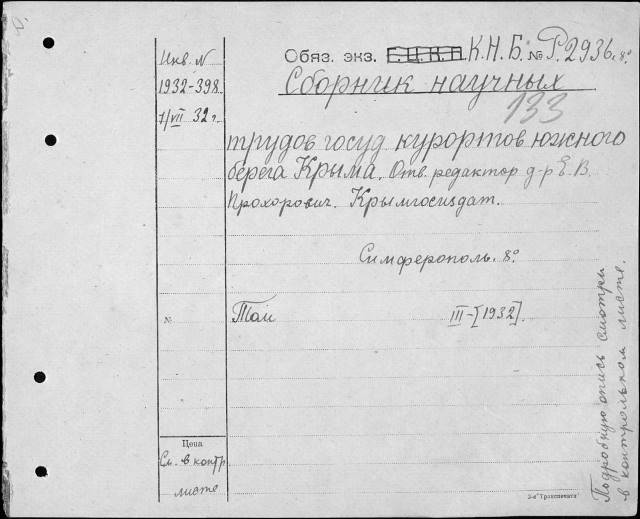 Инв. N
1932-398
7/VII 32 г.
Обяз. экз. Г.Ц.К.П. К.Н.Б. № Р2936. 8°
Сборник научных
133
трудов госуд курортов южного
берега Крыма. Отв. редактор д-р Е. В.
Прохорович. Крымгосиздат.
Симферополь. 8°
№
Том III-[1932].
Цена
См. в контр
листе
2-я "Транспечати"
Подробную опись смотри
в контрольном листе.